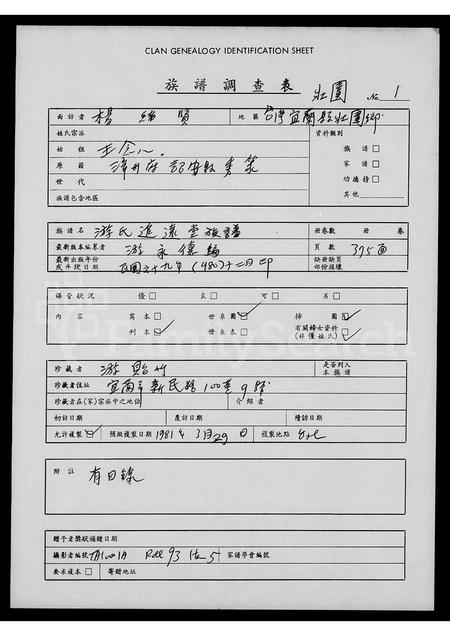 CLAN GENEALOGY IDENTIFICATION SHEET
族譜調查表 壯圍 No. 1
面訪者 楊緒賢 地區 台灣宜蘭縣壯圍鄉
姓氏宗派 資料類別
始祖 王念八 族譜□
原籍 漳州府詔安縣秀篆 家譜□
世代 功德榜□
族譜包含地區 其他
族譜名 游氏追遠堂族譜 冊卷數 冊 卷
最新版本編纂者 游永德編 頁數 375面
最新出版年份或年段日期 民國六十九年(1980)十二月印 缺冊缺頁部份損壞
保管狀況 優□ 良□ 可□ 劣□
內容 寫本□ 世系圖☑ 插圖☑
刊本☑ 世系表□ 有關婦女資料(非僅姓氏)☑
珍藏者 游貽竹 是否列入本族譜
珍藏者住址 宜蘭市新民路100巷9號
珍藏者在(家)宗族中之地位 介紹者
初訪日期 覆訪日期 續訪日期
允許複製☑ 預擬複製日期 1981年3月29日 複製地點
附註 有目錄
贈予者獎狀頒贈日期
攝影者編號 Roll 93 Item 5 家譜學會編號
要求複本□ 寄贈地址
FamilySearch